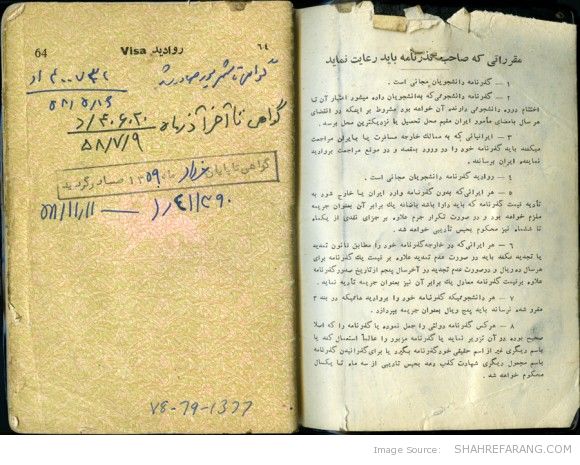 64 Visa روادید ٦٤
گواهی تا شهریور صادر شد
گواهی تا آخر آذرماه
۵۸/۷/۹
گواهی تا پایان خرداد ماه ۱۳۵۹ صادر گردید
۵۸/۱۱/۱۱ —
78-79-1377
مقرراتی که صاحب گذرنامه باید رعایت نماید
۱ — گذرنامه دانشجویان مجانی است .
۲ — گذرنامه دانشجوئی که بدانشجویان داده میشود اعتبار آن تا
اختتام دوره دانشجوئی دارنده آن خواهد بود مشروط بر اینکه در انقضای
هر سال بامضای مأمور ایران مقیم محل تحصیل یا نزدیکترین محل برسد .
۳ — ایرانیانی که به ممالک خارجه مسافرت یا بایران مراجعت
میکنند باید گذرنامه خود را در ورود بمقصد و در موقع مراجعت بروادید
نماینده ایران برسانند .
٤ — روادید گذرنامه دانشجویان مجانی است .
۵ — هر ایرانی‌که بدون گذرنامه وارد ایران یا خارج شود به
تأدیه قیمت گذرنامه که باید دارا باشد باضافه یك برابر آن بعنوان جریمه
ملزم خواهد بود و در صورت تکرار جرم علاوه بر جزای نقدی از یکماه
تا ششماه نیز محکوم بحبس تأدیبی خواهد شد .
٦ — هر ایرانی‌که در خارجه گذرنامه خود را مطابق قانون تمدید
یا تجدید نکند باید در صورت عدم تمدید علاوه بر قیمت یك گذرنامه برای
هر سال ده ریال و درصورت عدم تجدید در آخر سال پنجم از تاریخ صدور گذرنامه
علاوه بر قیمت گذرنامه معادل یك برابر آن نیز بعنوان جریمه تأدیه نماید .
۷ — هر دانشجوئیکه گذرنامه خود را بروادید مذکوره در بند ۳
مقرر شده نرساند باید پنج ریال بعنوان جریمه بپردازد .
۸ — هر کس گذرنامه دولتی را جعل نموده یا گذرنامه را که اصلا
صحیح بوده در آن تزویر نماید یا گذرنامه مزبور را عالماً استعمال کند یا
باسم دیگری غیر از اسم حقیقی خود گذرنامه بگیرد یا برای گذرانیدن گذرنامه
باسم مجعول دیگری شهادت کذب دهد بحبس تأدیبی از سه ماه تا یکسال
محکوم خواهد شد .
Image Source: SHAHREFARANG.COM